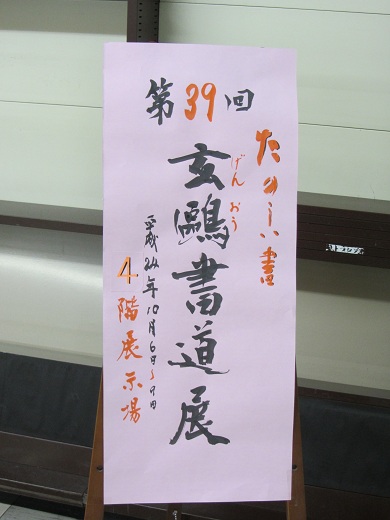 第39回
たのしい書
玄鷗書道展
げんおう
平成24年10月6日〜9日
4階展示場